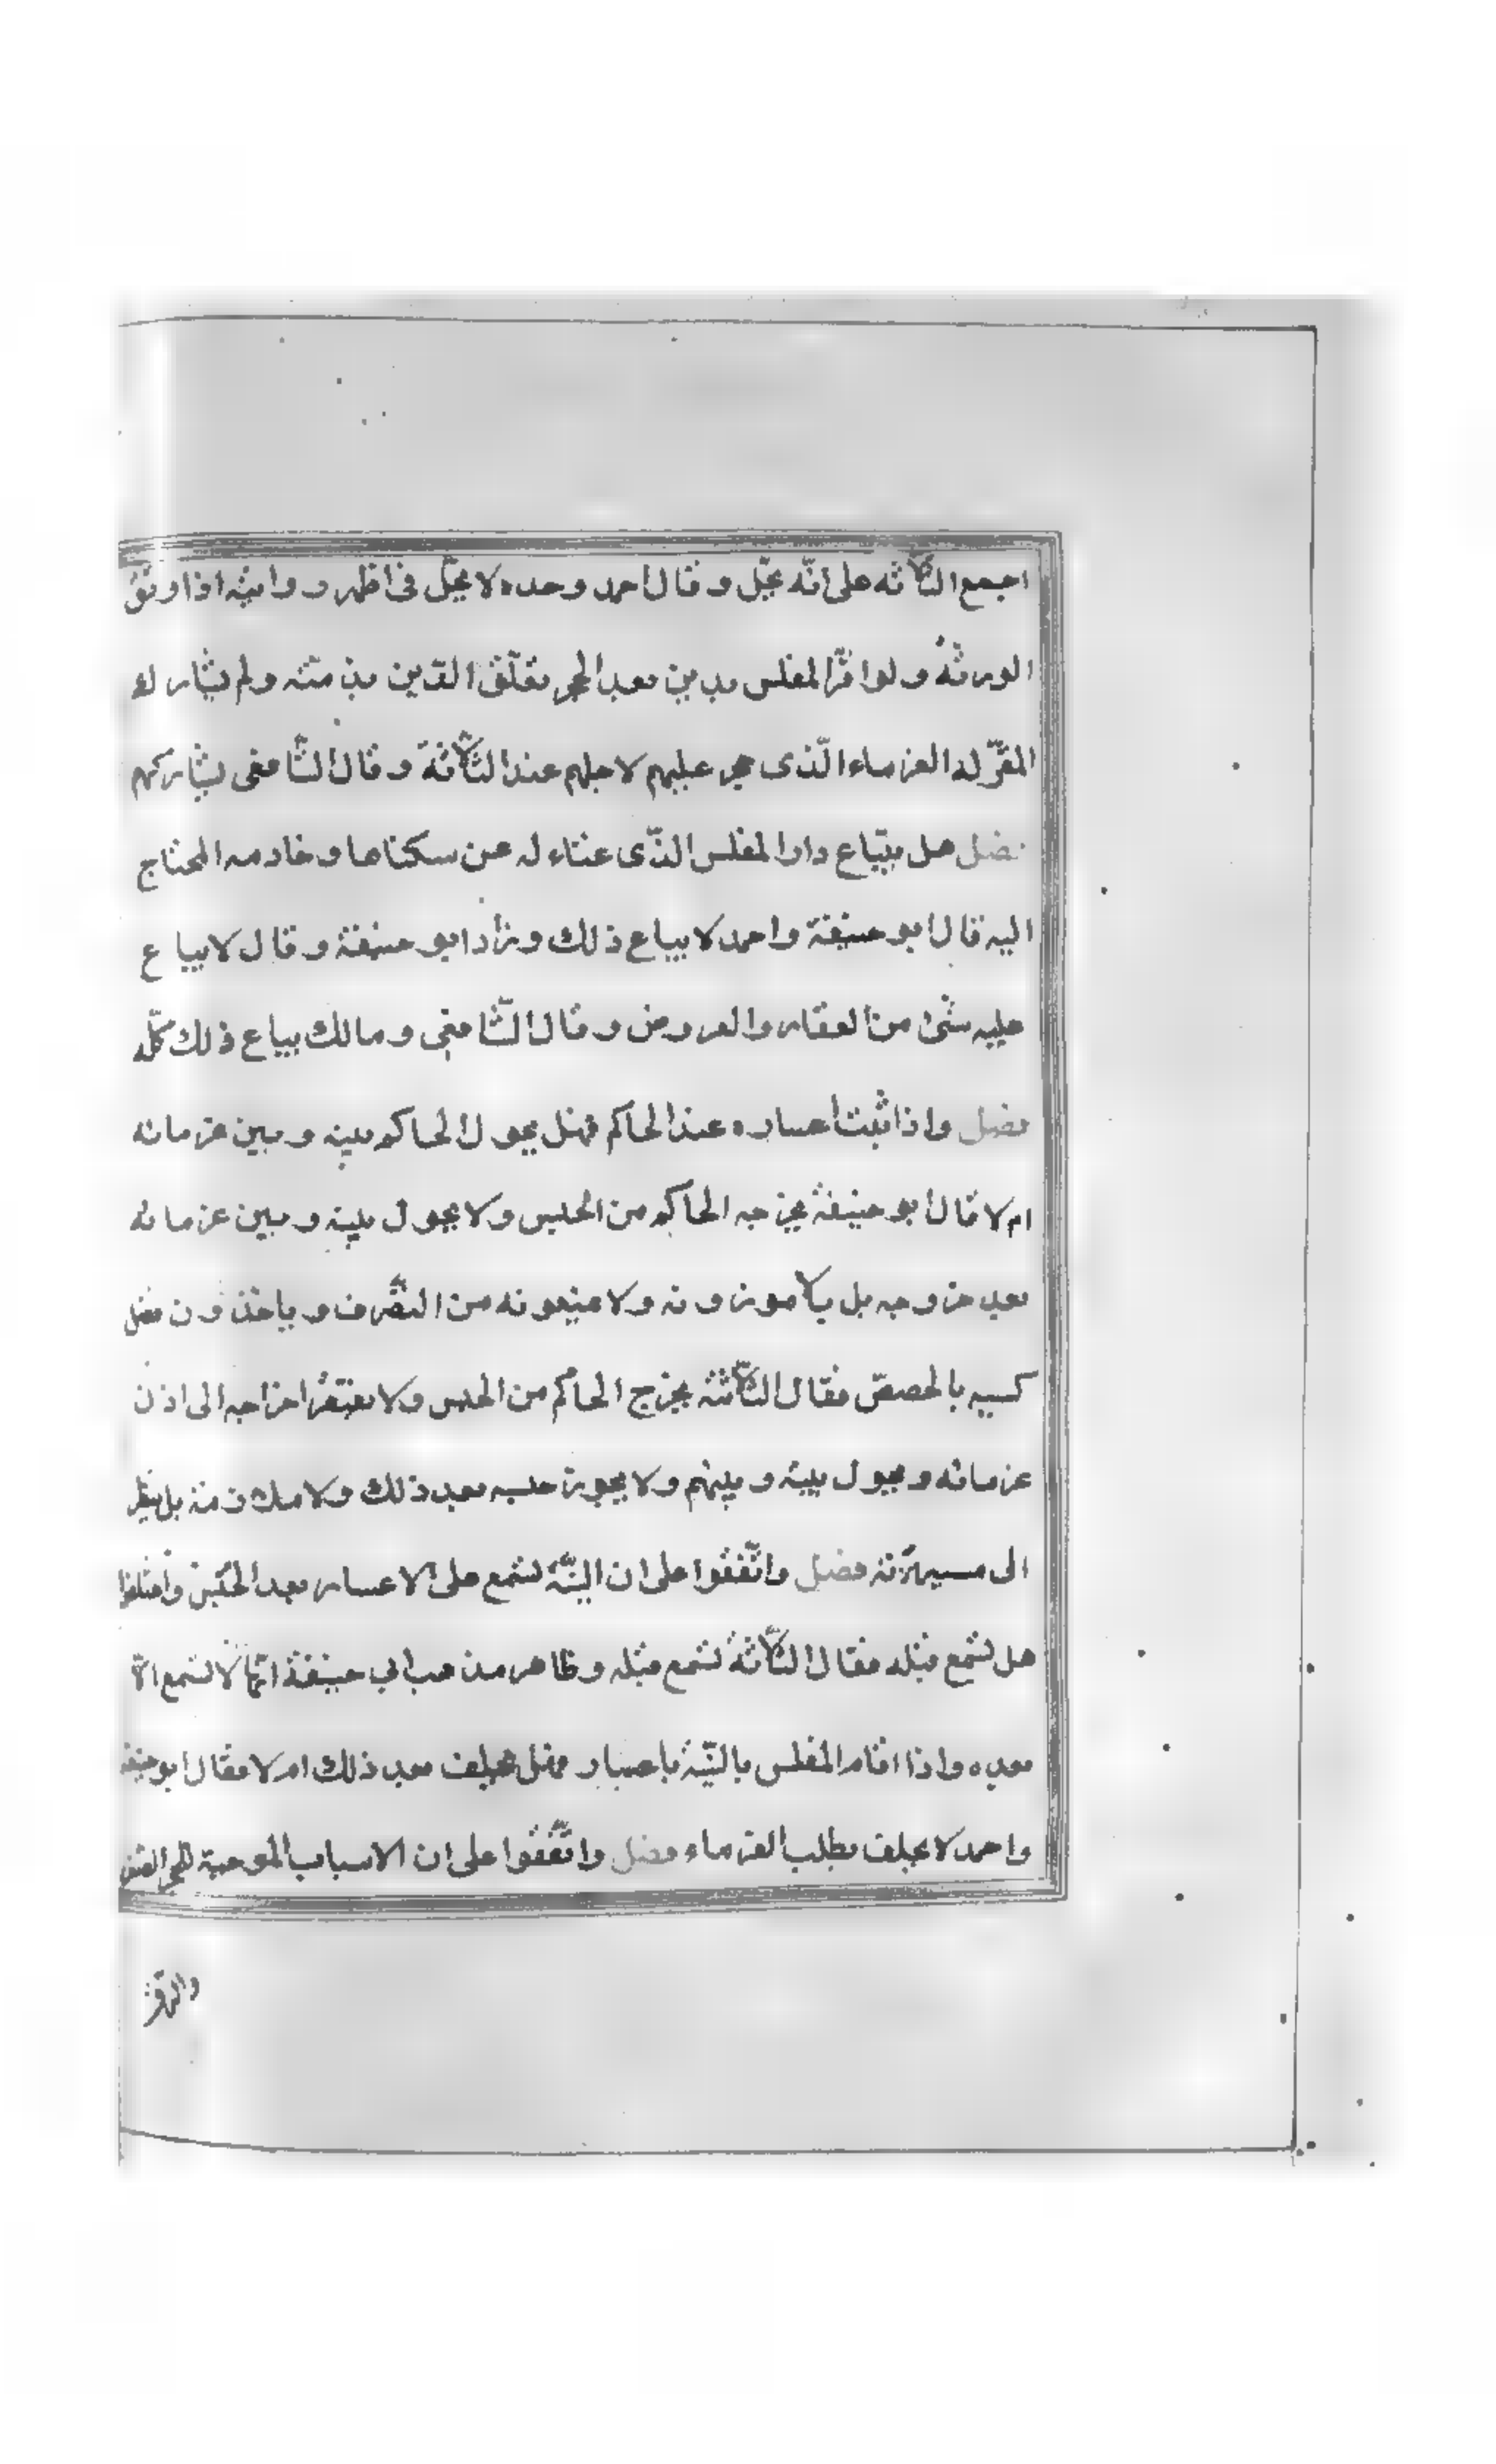 اجمع الثلاثه على انّه يحلّ و قال احمد وحده لا يحلّ فى اظهر روايتيه اذا وثق
الورثهُ ولو اقرّ المفلس بدين بعد الحجر تعلّق الدّين بذمّته ولم يشارك
المقرّ له الغرماء الّذى حجر عليهم لاجلهم عند الثلاثة و قال الشّافعى يشاركهم
فصل هل يتباع دار المفلس الذّى عناء له عن سكناها و خادمه المحتاج
اليه قال ابو حنيفة و احمد لا يباع ذلك و زاد ابو حنيفة و قال لا يباع
عليه شئ من العقار و العروض و قال الشّافعى و مالك يباع ذلك كلّه
فصل و اذا ثبت اعساره عند الحاكم فهل يحول الحاكم بينه و بين غرمائه
ام لا قال ابو حنيفة يخرجه الحاكم من الحبس ولا يحول بينه و بين غرمائه
بعد خروجه بل يلامزونه ولا يمنعونه من التصّرف و ياخذون فضل
كسبه بالحصصّ فقال الثلاثة يخرج الحاكم من الحبس ولا يفتقر اخراجه الى اذن
غرمائه و يحول بينه و بينهم ولا يجوز حبسه بعد ذلك ولا
الى ميسرته فصل واتّفقوا على ان البيّنة تسمع على الاعسار بعد الحبس واختلفوا
هل تسمع قبله فقال الثلاثة تسمع قبله و ظاهر مذهب ابى حنيفة انّها لا تسمع الّا
بعده و اذا اقام المفلس بالبيّنة باعسار فهل يحلف بعد ذلك ام لا فقال ابو حنيفة
و احمد لا يحلف بطلب الغرماء فصل و اتّفقوا على ان الاسباب الموجبة للحجر الصّغر
والرّق